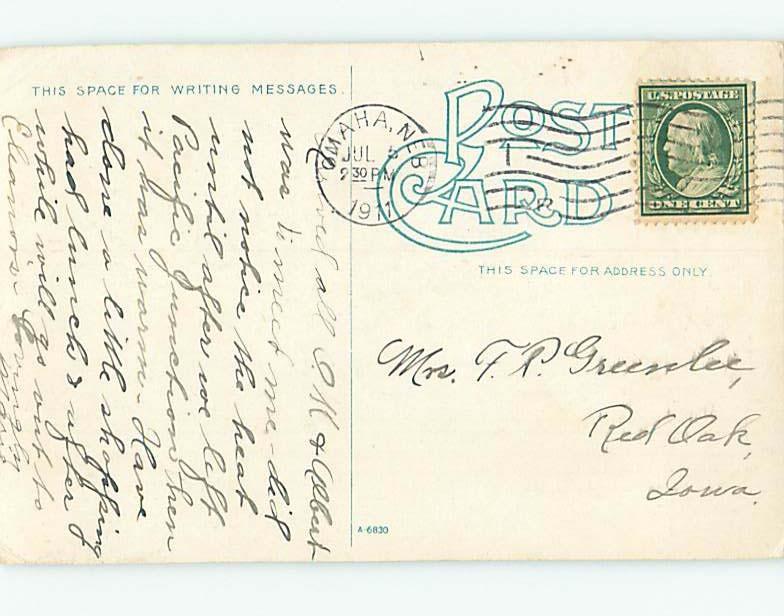 THIS SPACE FOR WRITING MESSAGES.
Arrived all O.K & Albert
was to meet me - did
not notice the heat
until after we left
Pacific Junction then
it was warm. Have
done a little shopping
had lunch & after a
while will go out to
Eleanors. Lovingly
OMAHA, NEB
JUL 5
2 30 PM
1911
POST
CARD
U.S. POSTAGE
ONE CENT
THIS SPACE FOR ADDRESS ONLY.
Mrs. F. P. Greenlee,
Red Oak,
Iowa.
A-6830